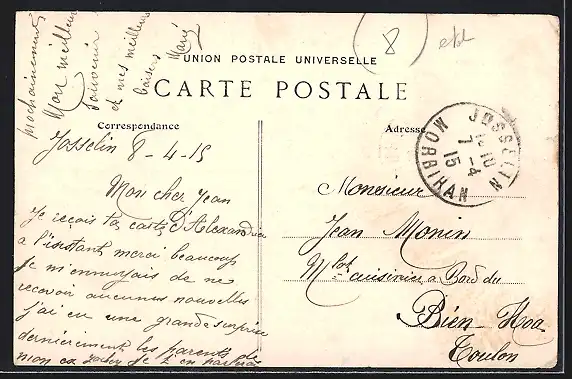 prochainement
Mon meilleur
souvenir
et mes meilleurs
baisers
Marie
8
UNION POSTALE UNIVERSELLE
CARTE POSTALE
Correspondance
Adresse
JOSSELIN
7-4
15
MORBIHAN
Josselin 8-4-15
Mon cher Jean
Je reçois ta carte d'Alexandrie
a l'instant merci beaucoup
Je m'ennuyais de ne
recevoir aucunes nouvelles
j'ai eu une grande surprise
dernièrement les parents de
mon ex
Monsieur
Jean Monin
Mlot cuisinier a Bord du
Bien-Hoa
Toulon